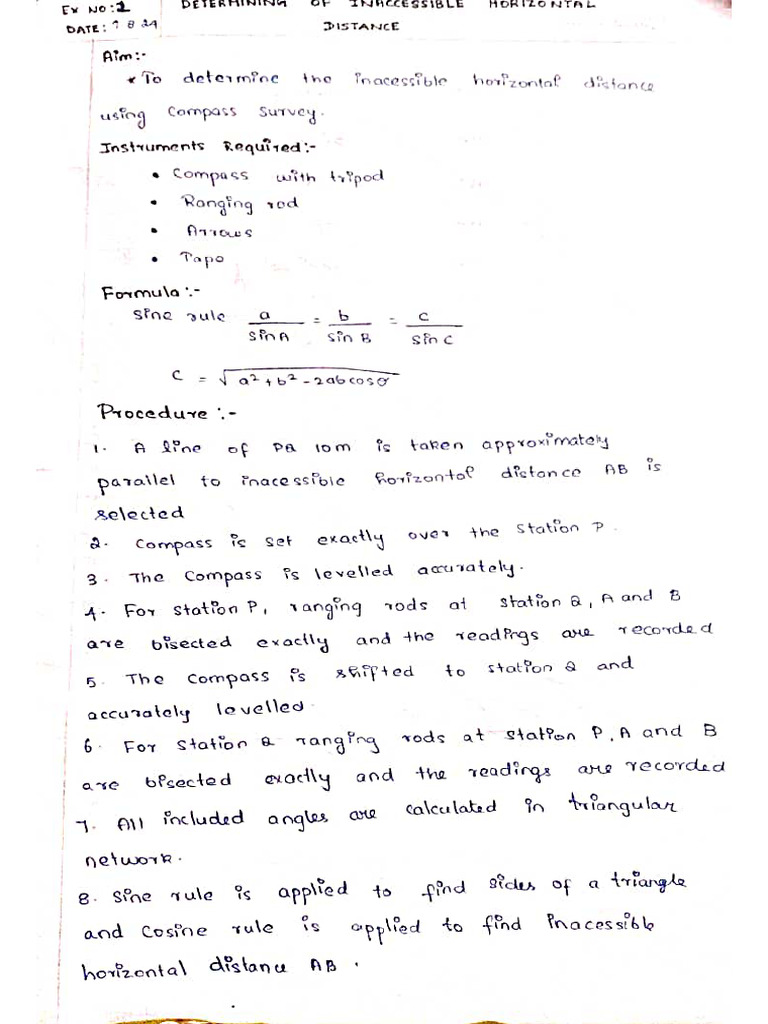 EX NO: 1 DETERMINING OF INACCESSIBLE HORIZONTAL
DATE: 7 8 24 DISTANCE
Aim:-
* To determine the inacessible horizontal distance
using Compass Survey.
Instruments Required:-
• Compass with tripod
• Ranging rod
• Arrows
• Tape
Formula:-
Sine rule a/sin A = b/sin B = c/sin C
C = √a² + b² - 2ab cosθ
Procedure:-
1. A line of PQ 10m is taken approximately
parallel to inacessible horizontal distance AB is
selected
2. Compass is set exactly over the station P.
3. The Compass is levelled accurately.
4. For station P, ranging rods at station Q, A and B
are bisected exactly and the readings are recorded
5. The Compass is shifted to station Q and
accurately levelled.
6. For station Q ranging rods at station P, A and B
are bisected exactly and the readings are recorded
7. All included angles are calculated in triangular
network.
8. Sine rule is applied to find sides of a triangle
and Cosine rule is applied to find inacessible
horizontal distance AB.